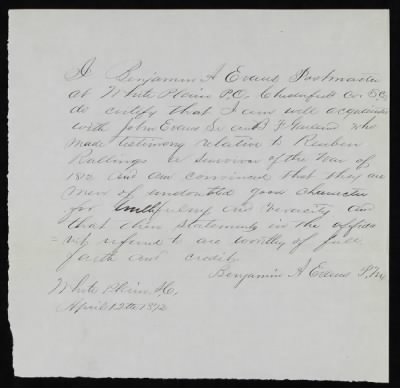 I Benjamin A Evans Postmaster
at White Plains P.O. Chesterfield Co. S.C,
do certify that I am well acquainted
with John Evans Sr and B F Garland who
made testimony relative to Reuben
Rallings a survivor of the War of
1812 and am convinced that they are
men of undoubted good character
for truthfulness and veracity and
that their statements in the affida
= vit referred to are worthy of full
faith and credit
Benjamin A Evans P,M,
White Plains S.C.
April 12th 1872